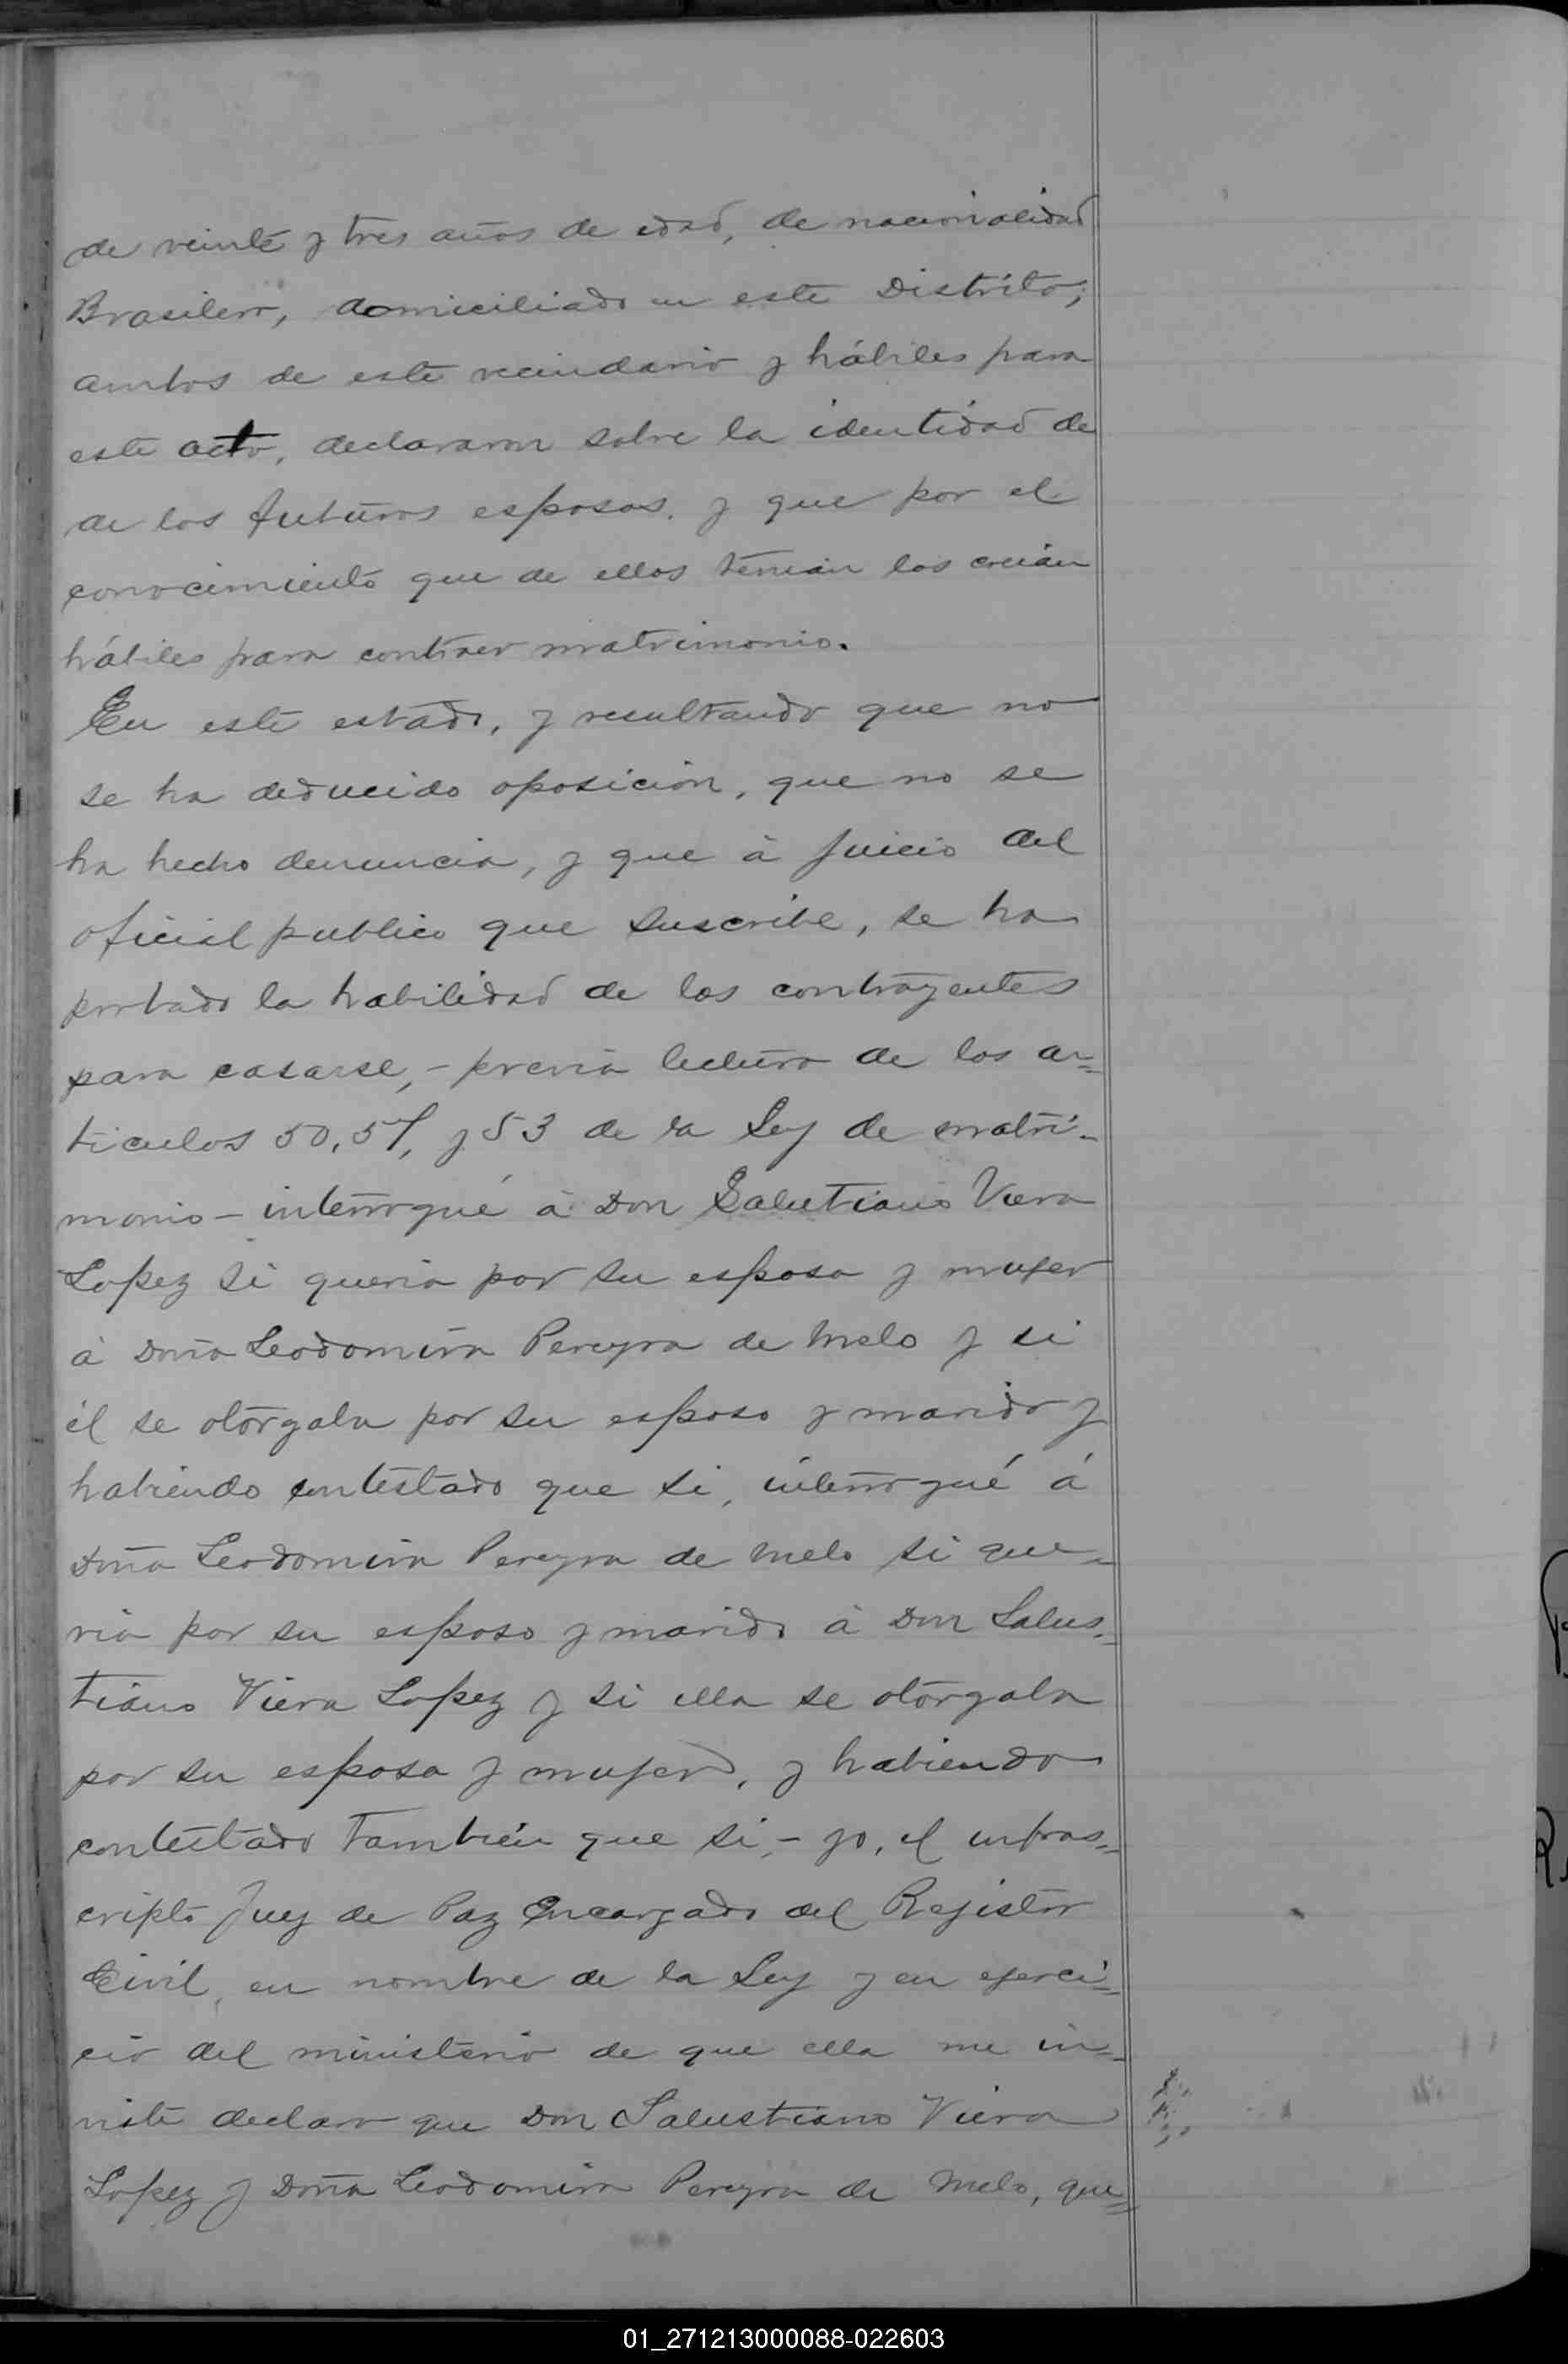 de veinte y tres años de edad, de nacionalidad
Brasilero, domiciliado en este Distrito;
ambos de este vecindario y hábiles para
este acto, declararon sobre la identidad de
de los futuros esposos. y que por el
conocimiento que de ellos tenian los creian
hábiles para contraer matrimonio.
En este estado, y resultando que no
se ha deducido oposición, que no se
ha hecho denuncia, y que á juicio del
oficial publico que suscribe, se ha
probado la habilidad de los contrayentes
para casarse, - previa lectura de los ar=
ticulos 50, 51, y 53 de la Ley de matri-
monio - interrogué á Don Salutiano Viera
Lopez si queria por su esposa y mujer
á Doña Leodomira Pereyra de Melo y si
él se otorgaba por su esposo y marido y
habiendo contestado que si, interrogué á
Doña Leodomira Pereyra de Melo si que=
ria por su esposo y marido á Don Salus=
tiano Viera Lopez y si ella se otorgaba
por su esposa y mujer, y habiendo
contestado tambien que si, - yo, el infras=
cripto Juez de Paz Encargado del Rejistro
Civil, en nombre de la Ley y en ejerci=
cio del ministerio de que ella me in=
viste declaro que Don Salustiano Viera
Lopez y Doña Leodomira Pereyra de Melo, que=
01_271213000088-022603